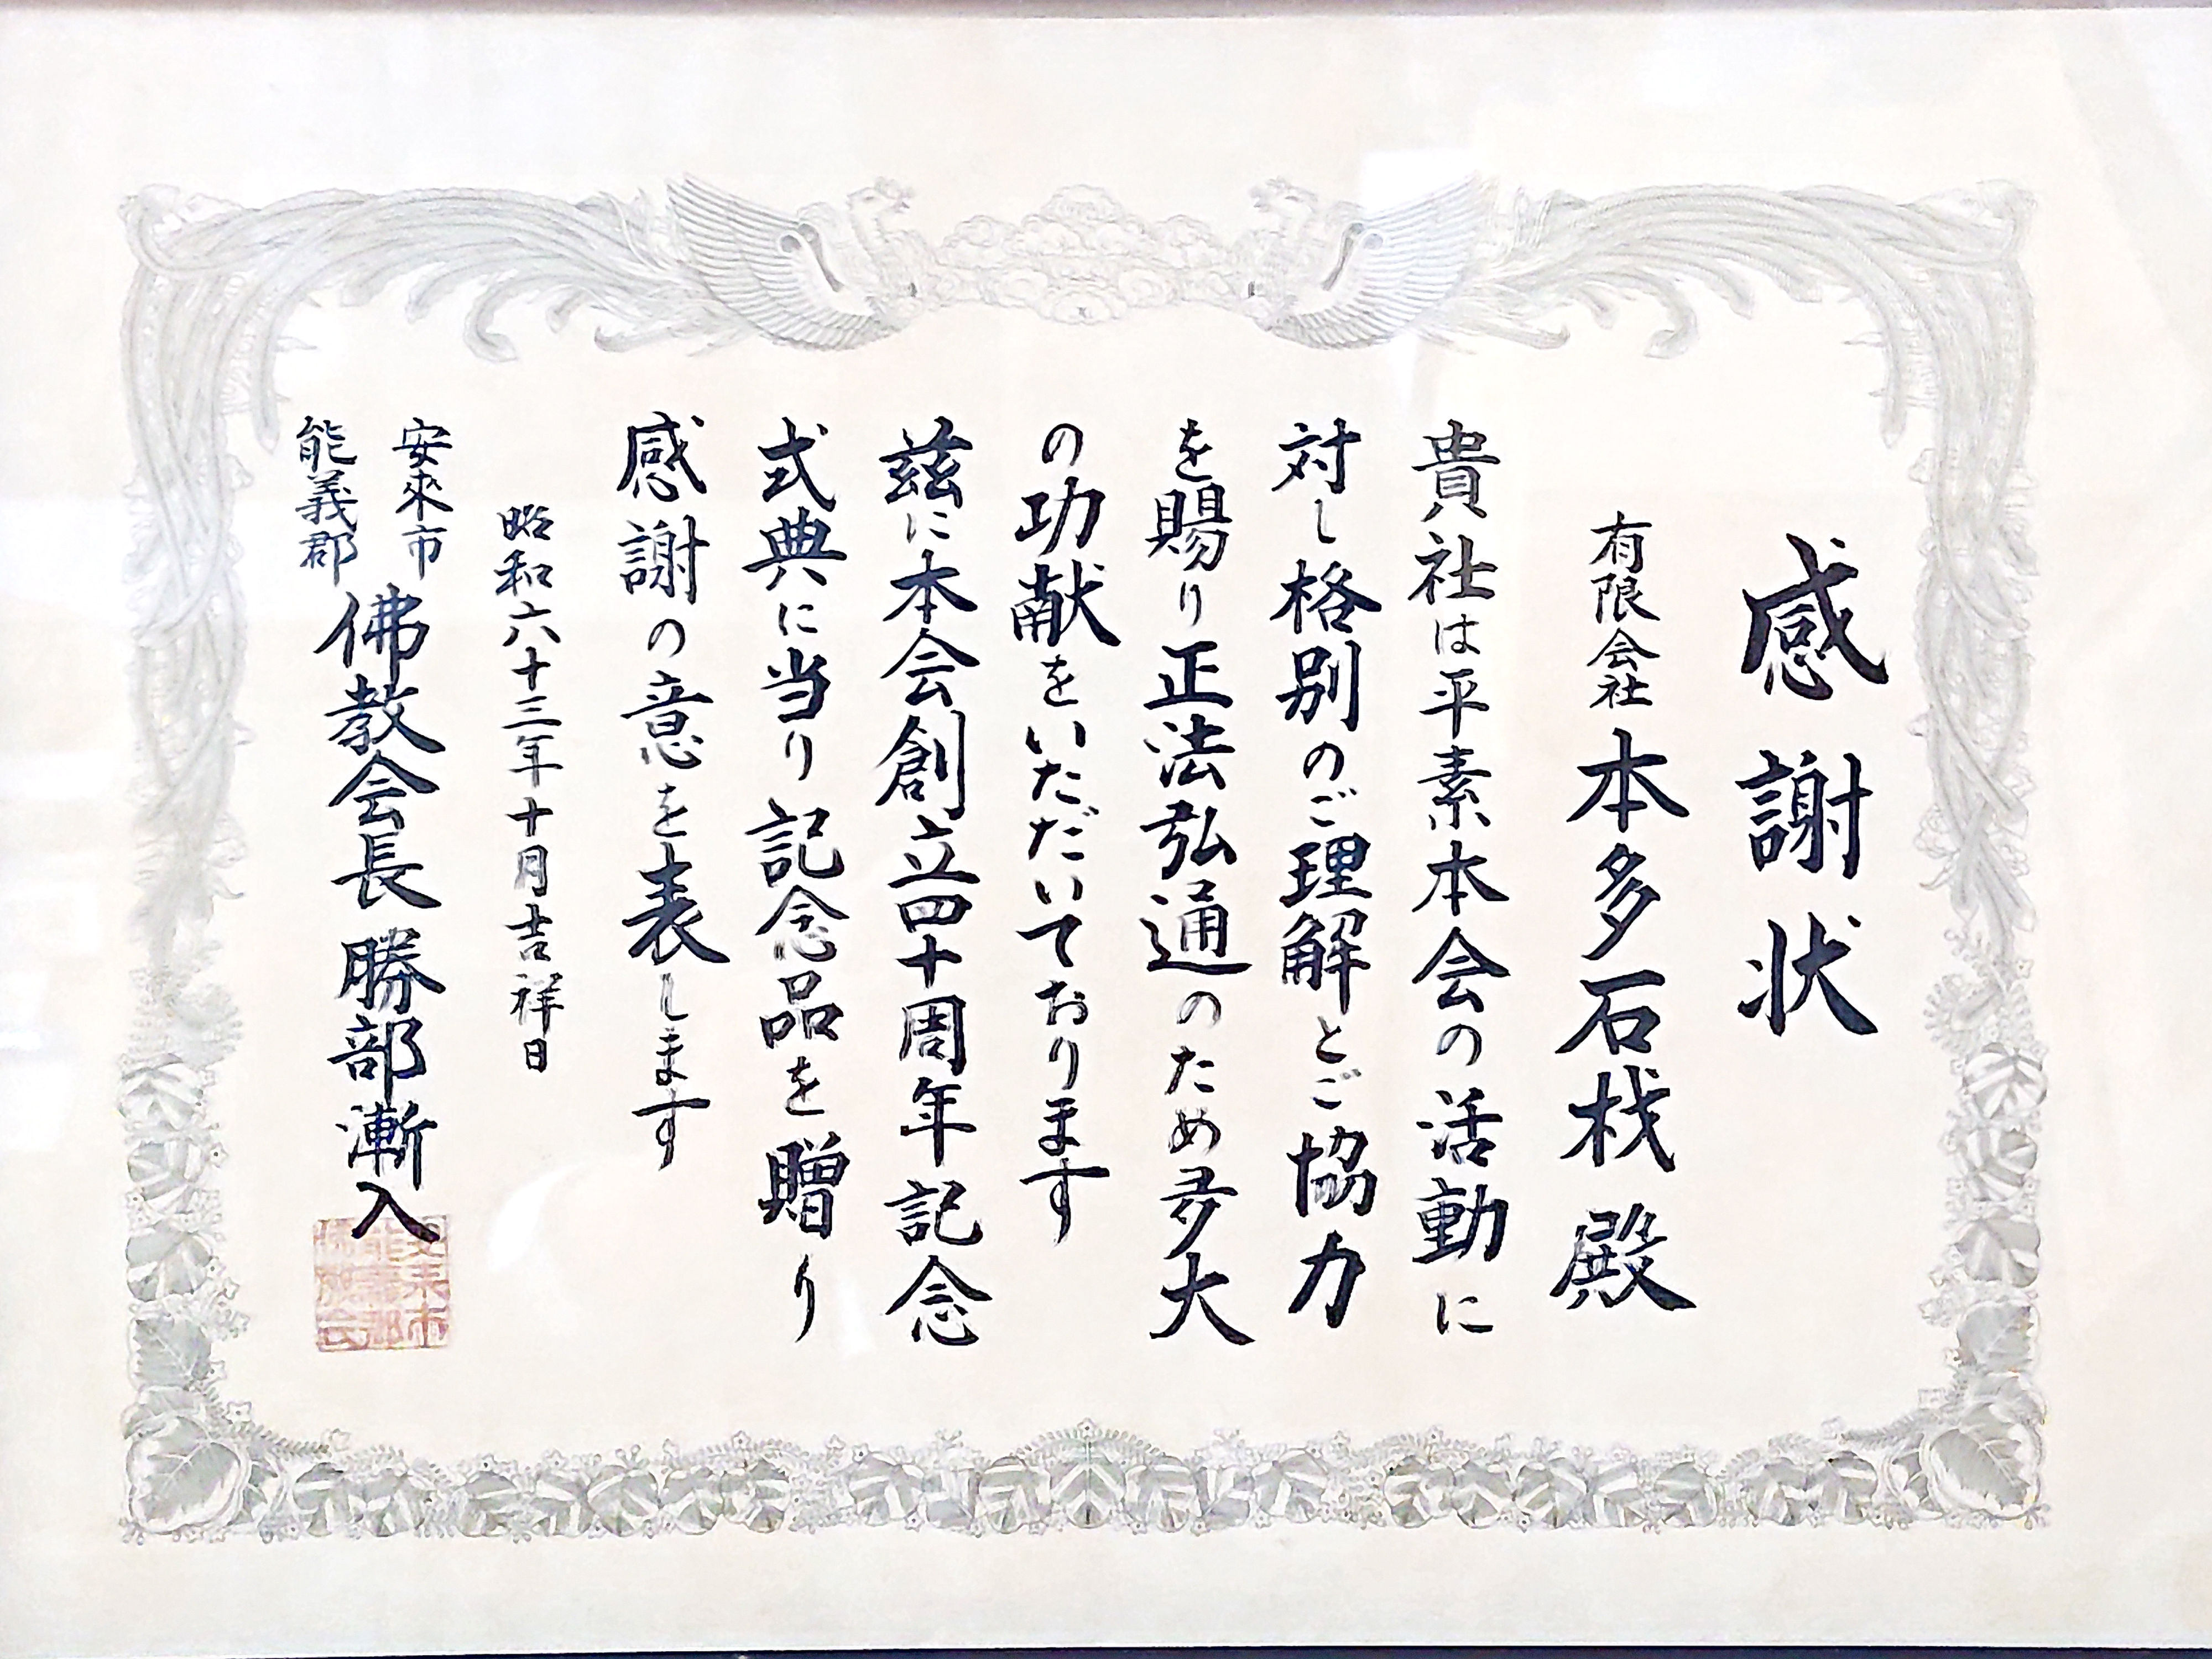 感謝状
有限会社 本多石材 殿
貴社は平素本会の活動に
対し格別のご理解とご協力
を賜り正法弘通のため多大
の功献をいただいております
茲に本会創立四十周年記念
式典に当り記念品を贈り
感謝の意を表します
昭和六十三年十月吉祥日
安來市
能義郡
佛教会長 勝部漸入